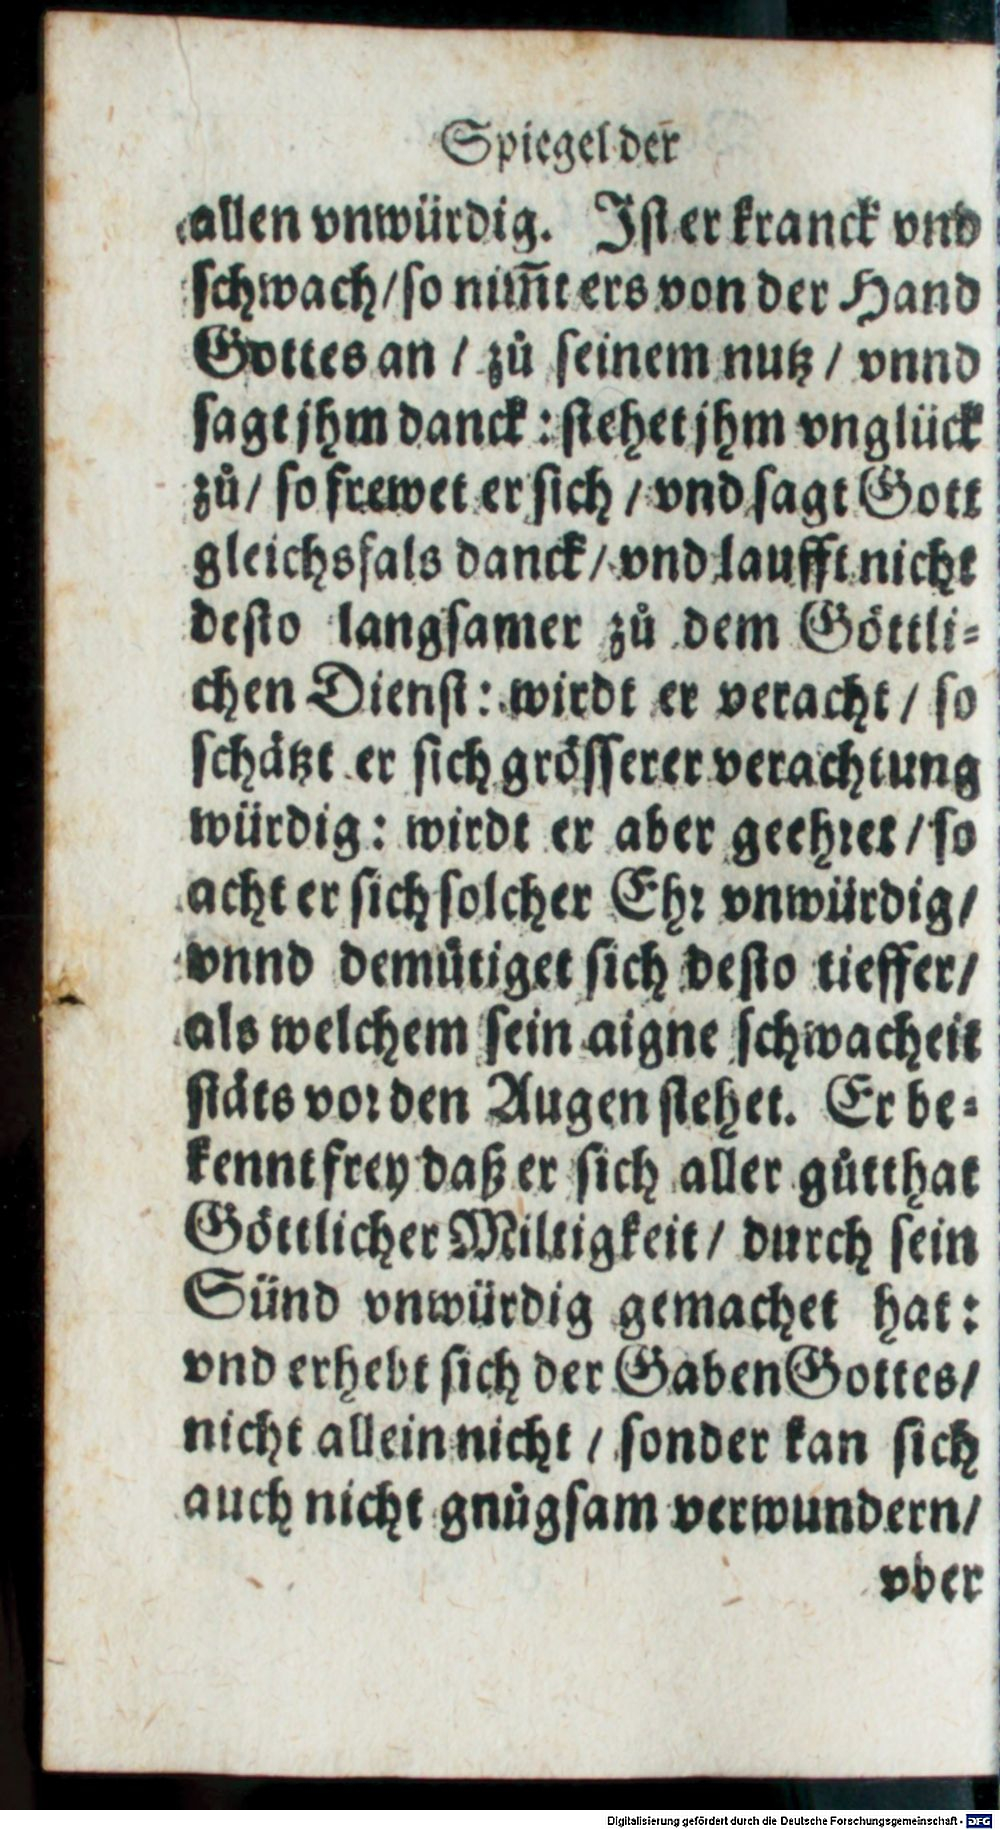 Spiegel der
allen vnwürdig. Ist er kranck vnd
schwach/ so nim̅t ers von der Hand
Gottes an / zů seinem nutz / vnnd
sagt jhm danck : stehet jhm vnglück
zů/ so frewet er sich / vnd sagt Gott
gleichsfals danck/ vnd laufft nicht
desto langsamer zů dem Göttli-
chen Dienst: wirdt er veracht / so
schätzt er sich grösserer verachtung
würdig: wirdt er aber geehret / so
acht er sich solcher Ehr vnwürdig/
vnnd demütiget sich desto tieffer/
als welchem sein aigne schwacheit
stäts vor den Augen stehet. Er be-
kennt frey daß er sich aller gůtthat
Göttlicher Miltigkeit / durch sein
Sünd vnwürdig gemachet hat:
vnd erhebt sich der Gaben Gottes/
nicht allein nicht / sonder kan sich
auch nicht gnůgsam verwundern/
vber
Digitalisierung gefördert durch die Deutsche Forschungsgemeinschaft - DFG